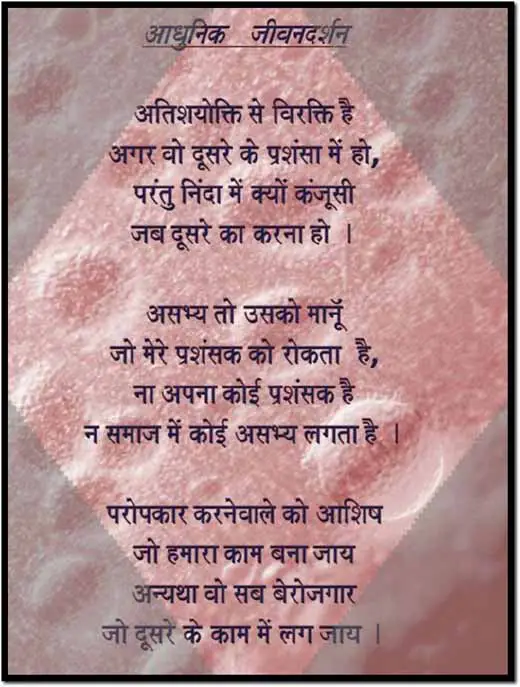 आधुनिक जीवनदर्शन
अतिशयोक्ति से विरक्ति है
अगर वो दूसरे के प्रशंसा में हो,
परंतु निंदा में क्यों कंजूसी
जब दूसरे का करना हो ।
असभ्य तो उसको मानूॅ
जो मेरे प्रशंसक को रोकता है,
ना अपना कोई प्रशंसक है
न समाज में कोई असभ्य लगता है ।
परोपकार करनेवाले को आशिष
जो हमारा काम बना जाय
अन्यथा वो सब बेरोजगार
जो दूसरे के काम में लग जाय ।